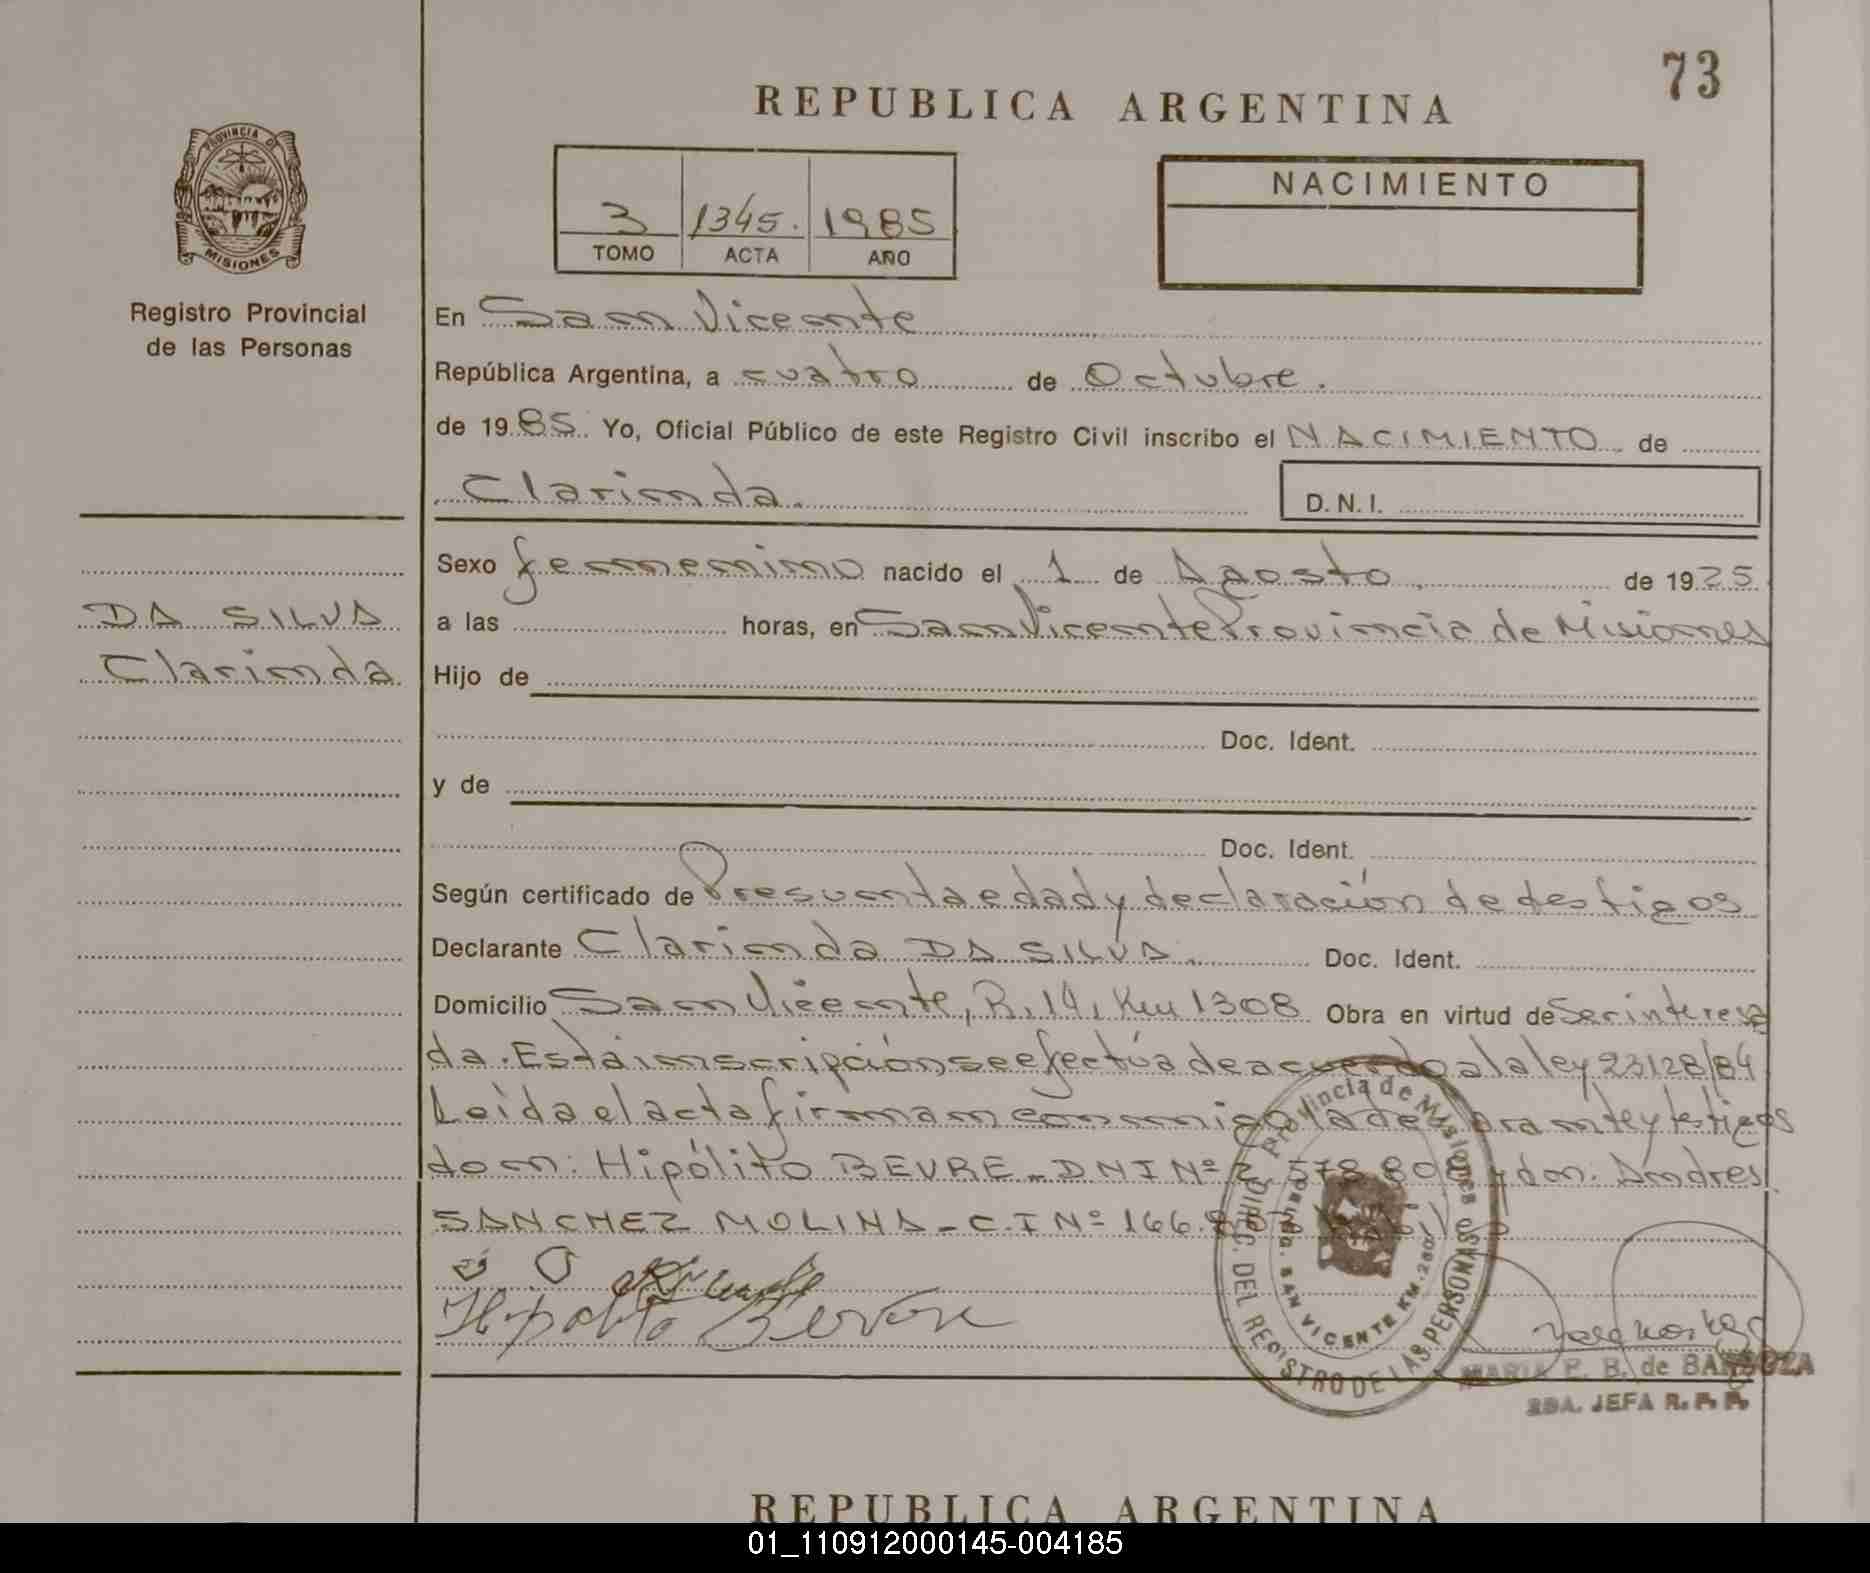 73
REPUBLICA ARGENTINA
PROVINCIA DE
MISIONES
Registro Provincial
de las Personas
3 1345. 1985
TOMO ACTA AÑO
NACIMIENTO
En San Vicente
República Argentina, a cuatro de Octubre.
de 1985. Yo, Oficial Público de este Registro Civil inscribo el NACIMIENTO de
Clarinda.
D.N.I.
Sexo femenino nacido el 1 de Agosto de 1925
DA SILVA
Clarinda
a las horas, en San Vicente Provincia de Misiones
Hijo de
Doc. Ident.
y de
Doc. Ident.
Según certificado de Presunta edad y declaración de testigos
Declarante Clarinda DA SILVA. Doc. Ident.
Domicilio San Vicente, R. 14, Km 1308 Obra en virtud de Ser interesa
da. Esta inscripción se efectúa de acuerdo a la ley 23128/84
Leida el acta firman conmigo la declarante y testigos
don: Hipólito BEVRE - DNI Nº 2.578.808 y don: Andres
SANCHEZ MOLINA - C.I Nº 166.
Hipolito Bevre
Provincia de Misiones
DEL REGISTRO DE LAS PERSONAS
SAN VICENTE KM. 280
MARIA E. B. de BARBOZA
2DA. JEFA R. P. P.
REPUBLICA ARGENTINA
01_110912000145-004185